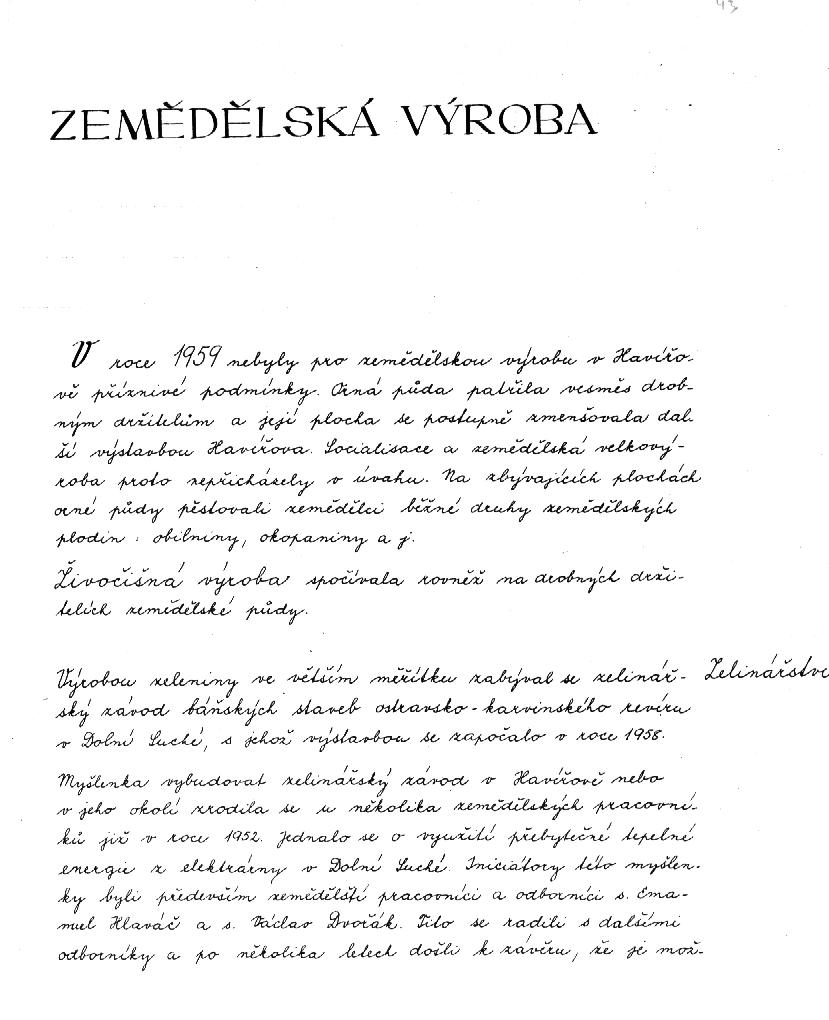 43
ZEMĚDĚLSKÁ VÝROBA
V roce 1959 nebyly pro zemědělskou výrobu v Havířo-
vě příznivé podmínky. Orná půda patřila vesměs drob-
ným držitelům a její plocha se postupně zmenšovala dal
ší výstavbou Havířova. Socialisace a zemědělská velkový-
roba proto nepřicházely v úvahu. Na zbývajících plochách
orné půdy pěstovali zemědělci běžné druhy zemědělských
plodin : obilniny, okopaniny a j.
Živočišná výroba spočívala rovněž na drobných drži-
telích zemědělské půdy.
Výrobou zeleniny ve větším měřítku zabýval se zelinář- Zelinářstvo
ský závod báňských staveb ostravsko-karvinského revíru
v Dolní Suché, s jehož výstavbou se započalo v roce 1958.
Myšlenka vybudovat zelinářský závod v Havířově nebo
v jeho okolí zrodila se u několika zemědělských pracovní-
ků již v roce 1952. Jednalo se o využití přebytečné tepelné
energie z elektrárny v Dolní Suché. Iniciátory této myšlen-
ky byli především zemědělští pracovníci a odborníci s. Ema-
nuel Hlaváč a s. Václav Dvořák. Tito se radili s dalšími
odborníky a po několika letech došli k závěru, že je mož-